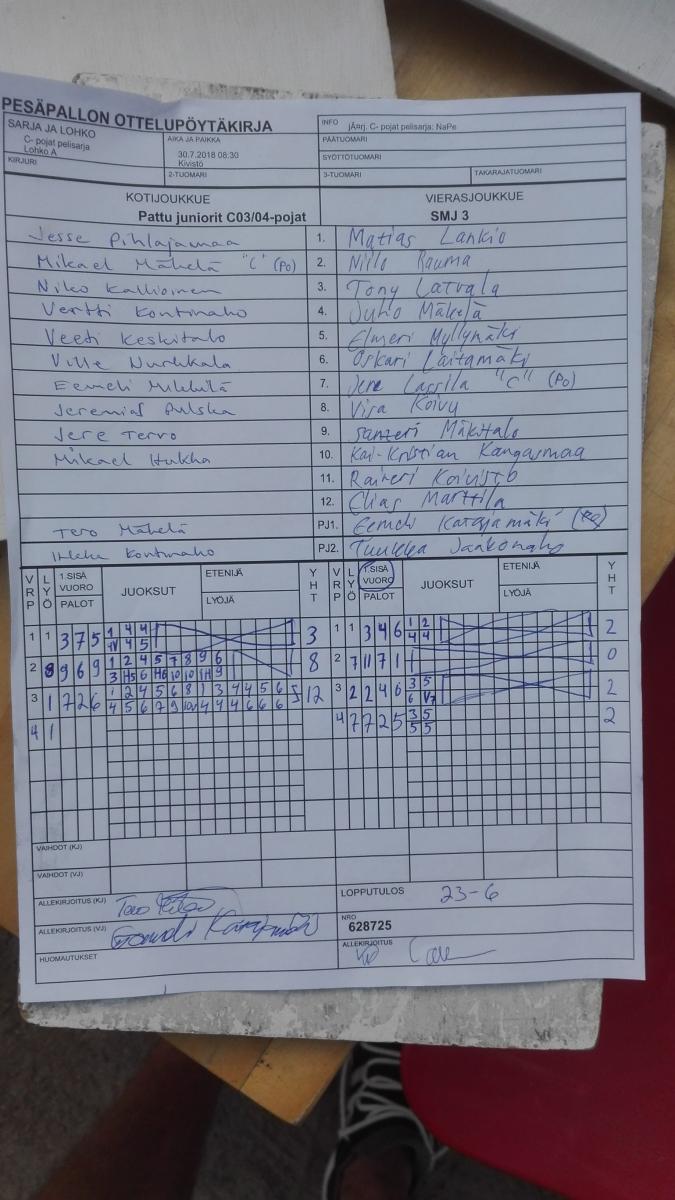 PESÄPALLON OTTELUPÖYTÄKIRJA
SARJA JA LOHKO
C- pojat pelisarja
Lohko A
AIKA JA PAIKKA
30.7.2018 08:30
Kivistö
INFO jÄrj. C- pojat pelisarja: NaPe
PÄÄTUOMARI
SYÖTTÖTUOMARI
KIRJURI 2-TUOMARI 3-TUOMARI TAKARAJATUOMARI
KOTIJOUKKUE VIERASJOUKKUE
Pattu juniorit C03/04-pojat SMJ 3
Jesse Pihlajamaa 1. Matias Lankio
Mikael Mäkelä "C" (Po) 2. Niilo Rauma
Niko Kallioinen 3. Tony Latvala
Vertti Kontinaho 4. Juho Mäkelä
Veeti Keskitalo 5. Elmeri Myllymäki
Ville Nurkkala 6. Oskari Laitamäki
Eemeli Mikkilä 7. Jere Lassila "C" (Po)
Jeremias Pulska 8. Visa Koivu
Jere Tervo 9. Santeri Mäkitalo
Mikael Hukka 10. Kai-Kristian Kangasmaa
11. Raineri Koivisto
12. Elias Marttila
Tero Mäkelä PJ1. Eemeli Katajamäki
Ilkka Kontinaho PJ2. Tuukka Jaakonaho
VRP LYÖ 1.SISÄ VUORO PALOT JUOKSUT ETENIJÄ LYÖJÄ YHT VRP LYÖ 1.SISÄ VUORO PALOT JUOKSUT ETENIJÄ LYÖJÄ YHT
1 1 3 7 5 1 4 4 3 1 1 3 4 6 1 2 2
4 5 4 4
2 8 9 6 9 1 2 4 5 7 8 9 6 8 2 7 11 7 1 0
3 H5 6 H6 10 10 1H 9
3 1 7 2 6 1 2 4 5 6 8 1 3 4 4 5 6 12 3 2 2 4 6 3 5 2
4 5 6 7 9 10 4 4 4 6 6 6 6 V7
4 1 4 7 7 2 5 3 5 2
5 5
VAIHDOT (KJ)
VAIHDOT (VJ)
ALLEKIRJOITUS (KJ) LOPPUTULOS 23-6
ALLEKIRJOITUS (VJ) NRO 628725
HUOMAUTUKSET ALLEKIRJOITUS